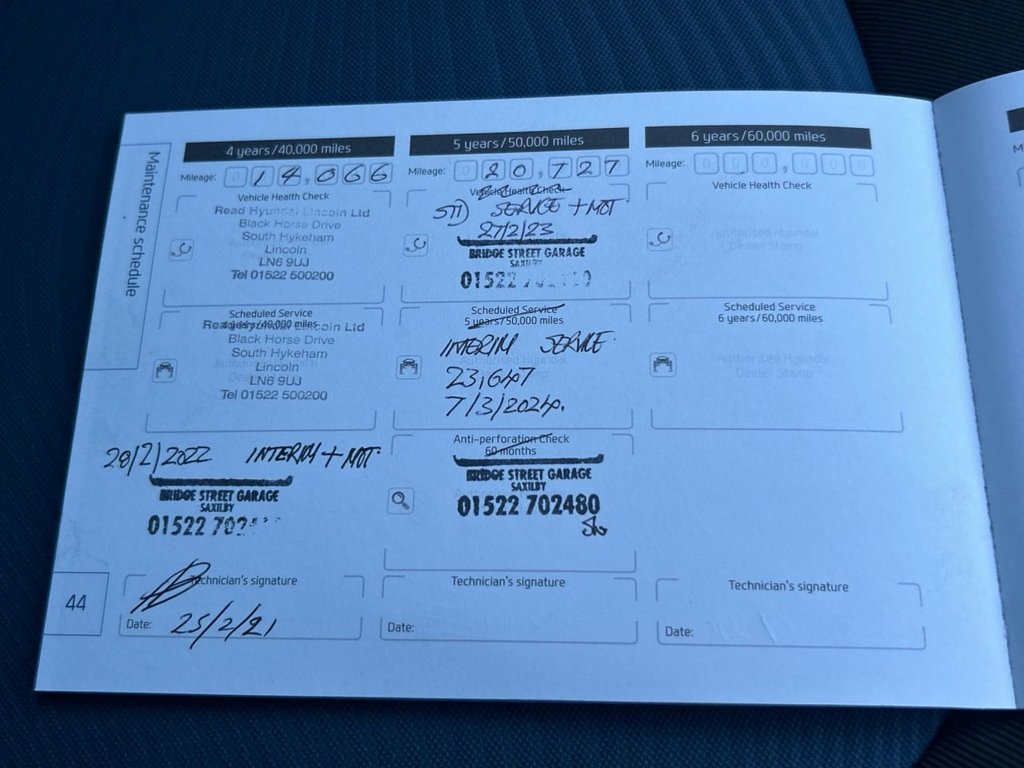 Maintenance schedule
4 years/40,000 miles
Mileage: 0 1 4 , 0 6 6
Vehicle Health Check
Read Hyundai Lincoln Ltd
Black Horse Drive
South Hykeham
Lincoln
LN6 9UJ
Tel 01522 500200
Scheduled Service
4 years/40,000 miles
Read Hyundai Lincoln Ltd
Black Horse Drive
South Hykeham
Lincoln
LN6 9UJ
Tel 01522 500200
28/2/2022 INTERIM + MOT
BRIDGE STREET GARAGE
SAXILBY
01522 702
Technician's signature
Date: 25/2/21
44
5 years/50,000 miles
Mileage: 0 2 0 , 7 2 7
Vehicle Health Check
SERVICE + MOT
27/2/23
BRIDGE STREET GARAGE
SAXILBY
01522
Scheduled Service
5 years/50,000 miles
Authorised Hyundai
INTERIM SERVICE
23,647
7/3/2024.
Anti-perforation Check
60 months
BRIDGE STREET GARAGE
SAXILBY
01522 702480
Technician's signature
Date:
6 years/60,000 miles
Mileage: 0 0 0 , 0 0 0
Vehicle Health Check
Authorised Hyundai
Dealer Stamp
Scheduled Service
6 years/60,000 miles
Authorised Hyundai
Dealer Stamp
Technician's signature
Date: